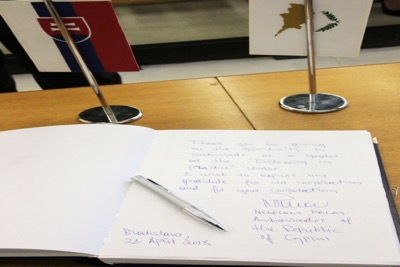 Thank you for giving
me the opportunity to
participate as a speaker
at the "Diplomacy in
Practice"
I wish to express my
gratitude for our cooperation
and for your cooperation
Ambassador of
the Republic
of Cyprus
Bratislava,
21 April 2018